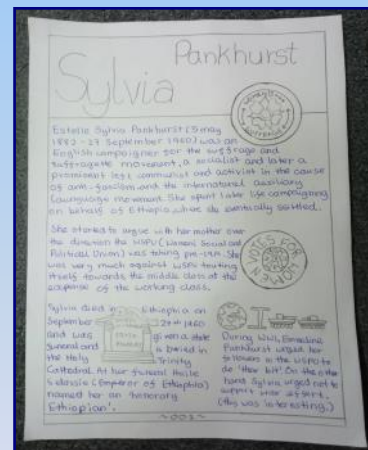 Sylvia
Pankhurst
Estelle Sylvia Pankhurst (5 may
1882 - 27 September 1960) was an
English campaigner for the suffrage and
suffragette movement, a socialist and later a
prominent left communist and activist in the cause
of anti-fascism and the international auxiliary
language movement. She spent later life campaigning
on behalf of Ethiopia, where she eventually settled.
She started to argue with her mother over
the direction the WSPU (Womens Social and
Political Union) was taking pre-war. She
was very much against
itself towards the middle class at the
expense of the working class.
VOTES FOR
WOMEN
Sylvia died in Ethiopia on
September 27th 1960
and was given a state
funeral and is buried in
the Holy Trinity
Cathedral. At her funeral Haile
Selassie (Emperor of Ethiopia)
named her an 'honorary
Ethiopian'.
During WW1, Emmeline
Pankhurst urged her
followers in the WSPU to
do 'their bit'. On the other
hand Sylvia urged not to
support war effort.
(this was interesting.)